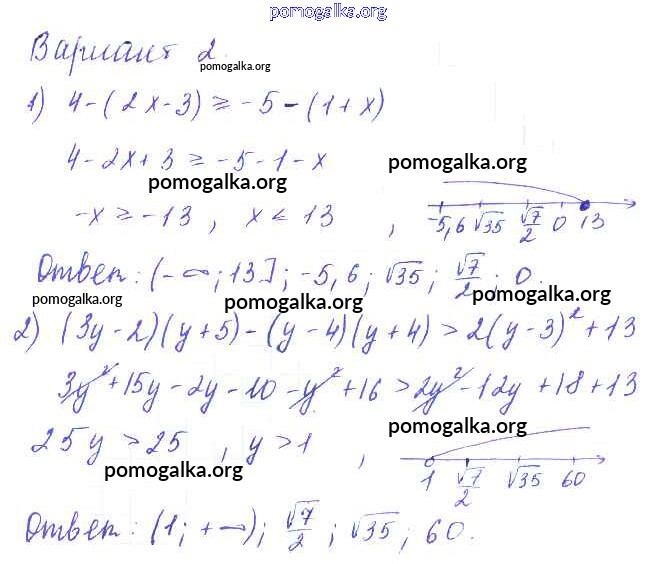 pomogalka.org
Вариант 2.
pomogalka.org
1) 4-(2x-3) ≥ -5-(1+x)
4-2x+3 ≥ -5-1-x
pomogalka.org
pomogalka.org
-x ≥ -13, x ≤ 13,
-5,6 √35 √7/2 0 13
Ответ: (-∞; 13]; -5,6; √35; √7/2; 0.
pomogalka.org
pomogalka.org
pomogalka.org
2) (3y-2)(y+5)-(y-4)(y+4) > 2(y-3)²+13
3y²+15y-2y-10-y²+16 > 2y²-12y+18+13
pomogalka.org
25y > 25, y > 1,
pomogalka.org
1 √7/2 √35 60
Ответ: (1; +∞); √7/2; √35; 60.